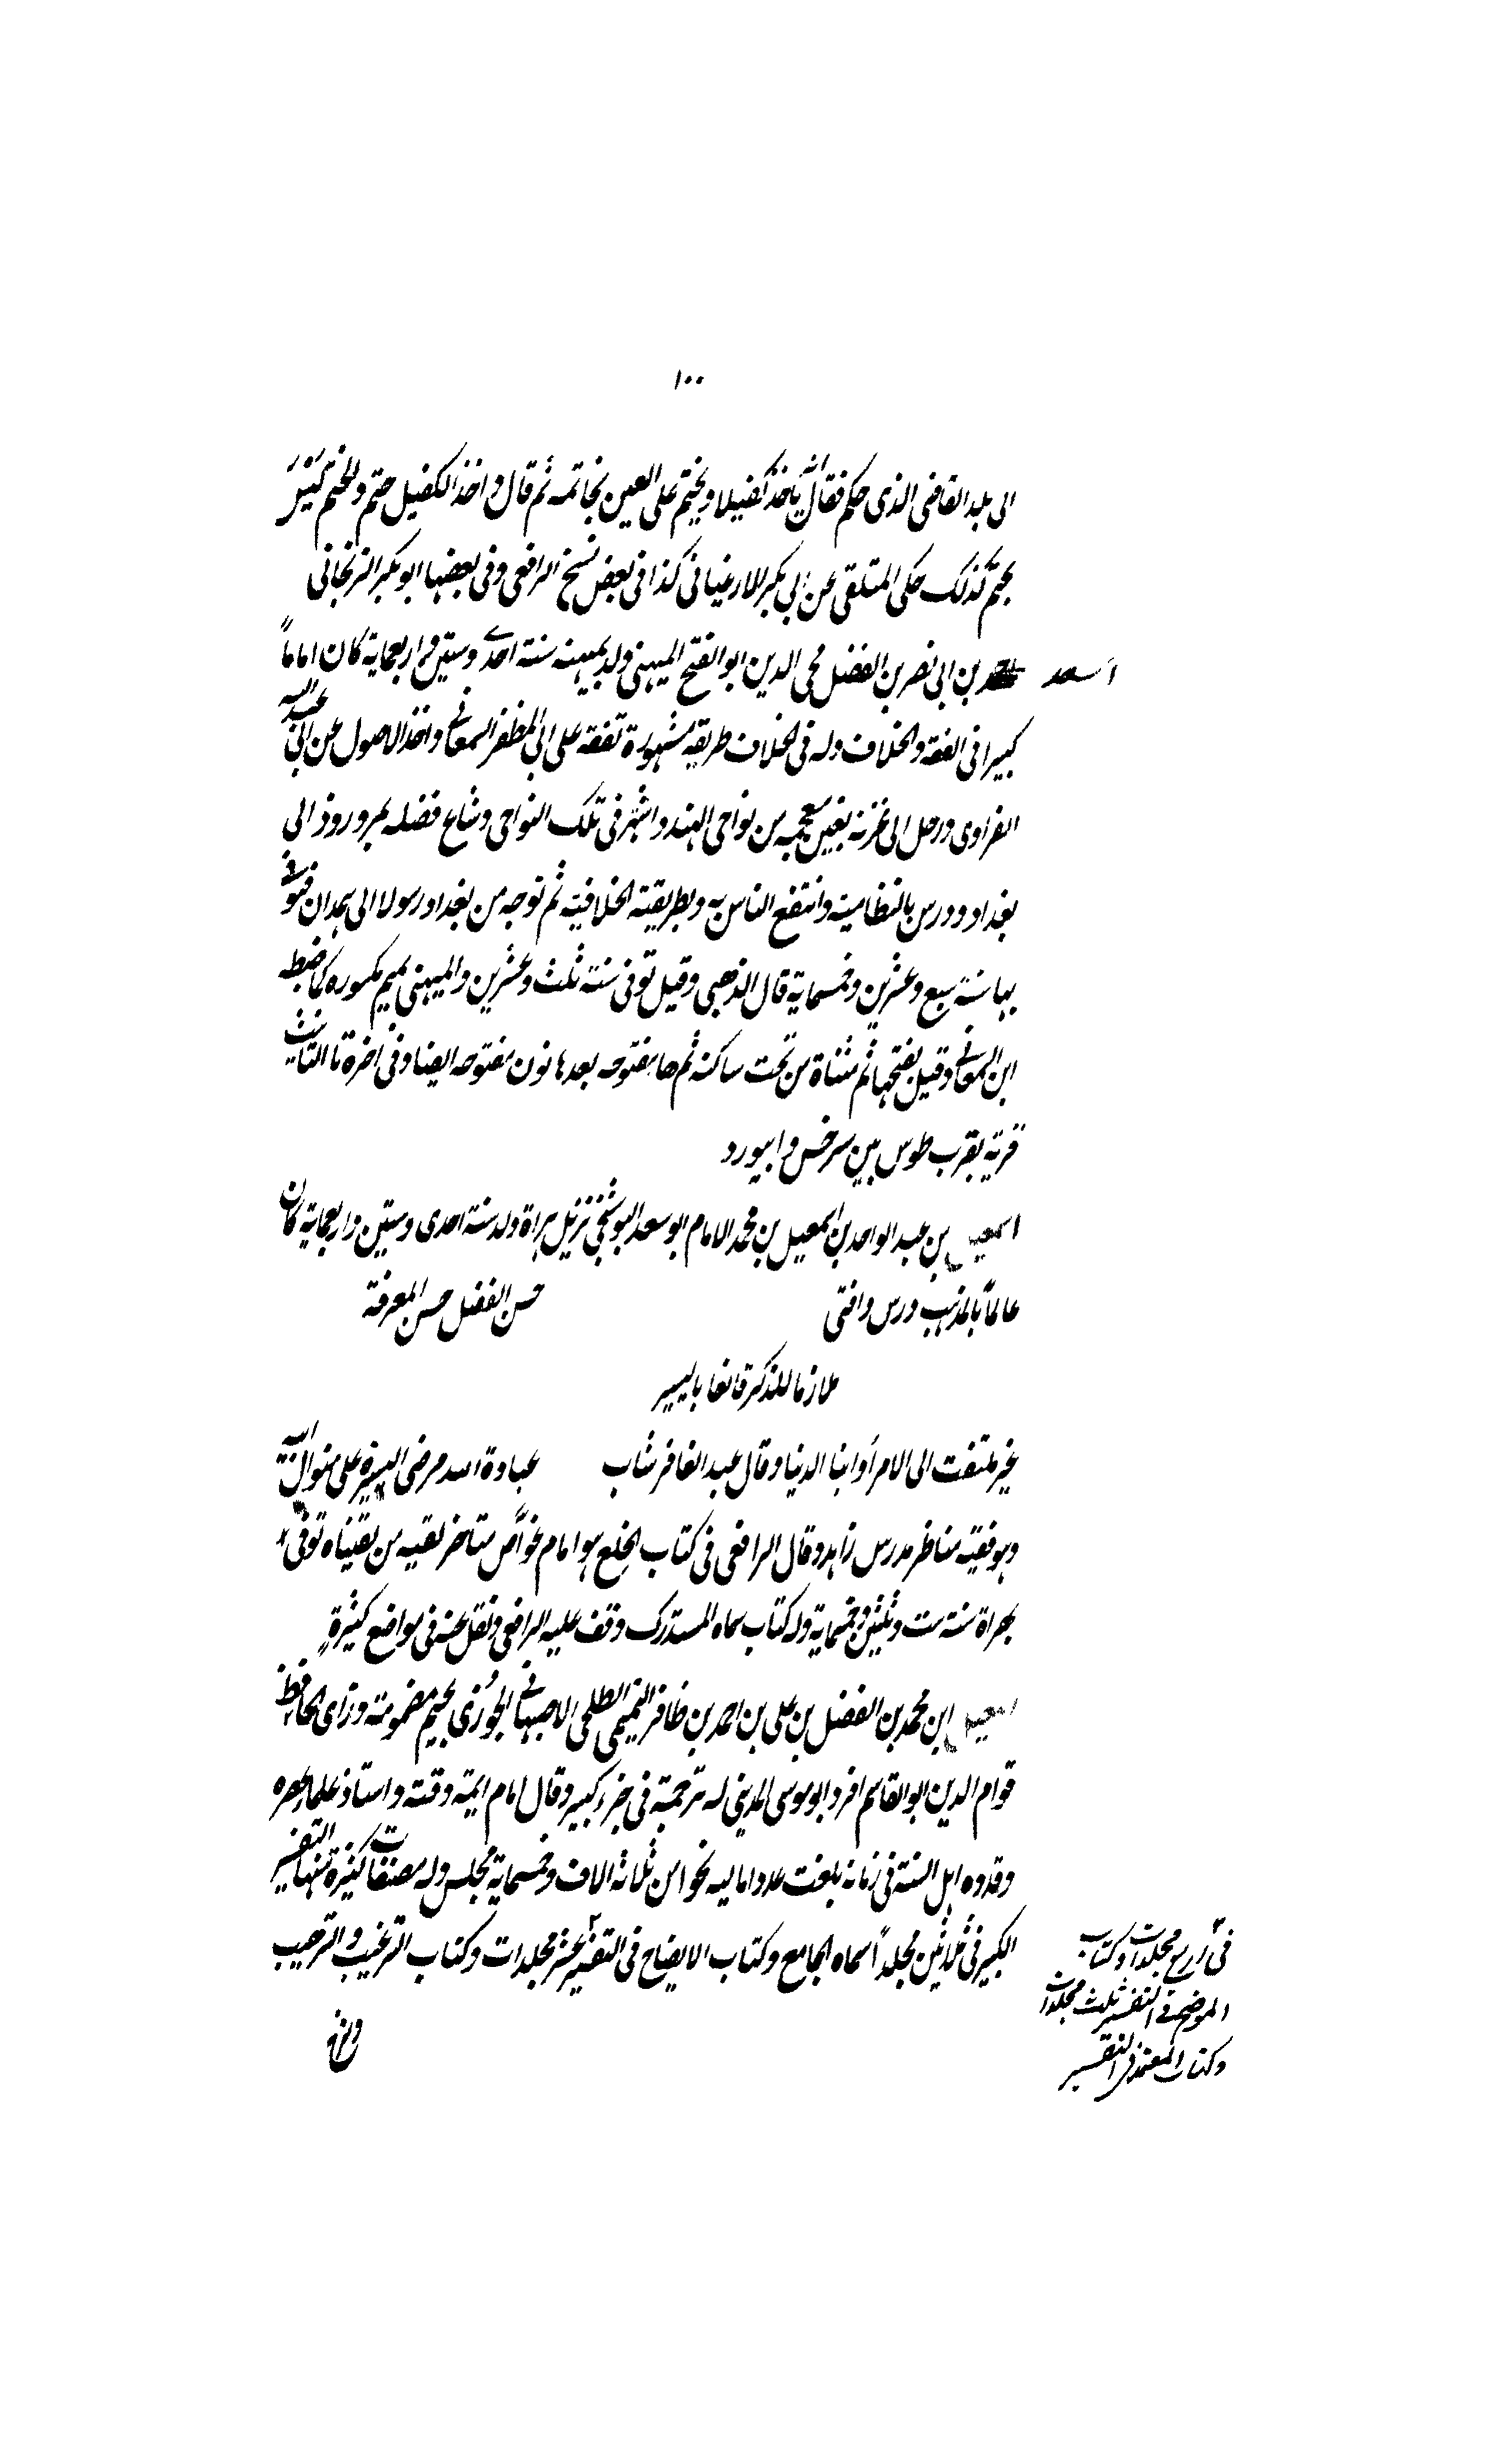 ١٠٠
الى بلد القاضى الذى حكم فقال يأخذ كفيلا ويختم على العين بخاتمه ثم قال واخذ الكفيل حتم والختم ليس
بحتم كذلك حكى المتلقى عن ابى بكر الارغيانى كذا فى بعض نسخ الرافعى وفى بعضها ابو بكر الزنجانى
اسعد بن ابى نصر بن الفضل مجى الدين ابو الفتح الميهنى ولد بميهنه سنة احدى وستين واربعماية كان اماماً
كبيرا فى الفقه والخلاف وله فى الخلاف طريقه مشهورة تفقه على ابى المظفر السمعانى واخذ الاصول عن ابى عبد الله
الفراوى ورحل الى غزنة بغين معجمه من نواحى الهند واشتهر فى تلك النواحى وشاع فضله بمرو روذ الى
بغداد ودرس بالنظامية وانتفع الناس به وبطريقته الخلافية ثم توجه من بغداد رسولا الى همدان فتوفى
بها سنة سبع وعشرين وخمسماية قال الذهبى وقيل توفى سنة ثلث وعشرين والميهنى بميم مكسوره كما ضبطه
ابن السمعانى وقيل بفتحها ثم مثناة من تحت ساكنه ثم ها مفتوحه بعدها نون مفتوحه ايضا وفى اخرة تا التانيث
قرية بقرب طوس بين سرخس وابيورد
اسمعيل بن عبد الواحد بن اسمعيل بن محمد الامام ابو سعد البوشنجى نزيل هراة ولد سنة احدى وستين واربعماية كان
عالماً بالمذهب درس وافتى حسن الفضل حسن المعرفة
ملازما للذكر قانعا باليسير
غير ملتفت الى الامرأ وابنا الدنيا وقال عبد الغافر شاب عبادة الله مرضى السيرة على منوال ابيه
وهو فقيه مناظر مدرس زاهد وقال الرافعى فى كتاب الخلع هو امام غوّاص متاخر لقيه من لقيناه توفى
بهراة سنة ست وثلثين وخمسماية وله كتاب سماه المستدرك وقف عليه الرافعى ونقل عنه فى مواضع كثيرةٍ
اسمعيل ابن محمد بن الفضل بن على بن احمد بن طاهر التيمى الطلحى الاصبهانى الجُوزى بجيم مضمومة وزاى الحافظ
قوام الدين ابو القاسم افرد ابو موسى المدينى له ترجمة فى جزء كبير وقال امام ايمة وقته واستاذ علما عصره
وقدوه اهل السنة فى زمانه بلغت عدد اماليه نحوا من ثلاثه الاف وخمسماية مجلس وله مصنفات كثيرة منها التفسير
الكبير فى ثلاثين مجلداً سماه الجامع وكتاب الايضاح فى التفسير عشر مجلدات وكتاب الترغيب والترهيب
فى اربع مجلدات وكتاب
الموضح فى التفسير ثلث مجلدات
وكتاب المعتمد فى التفسير